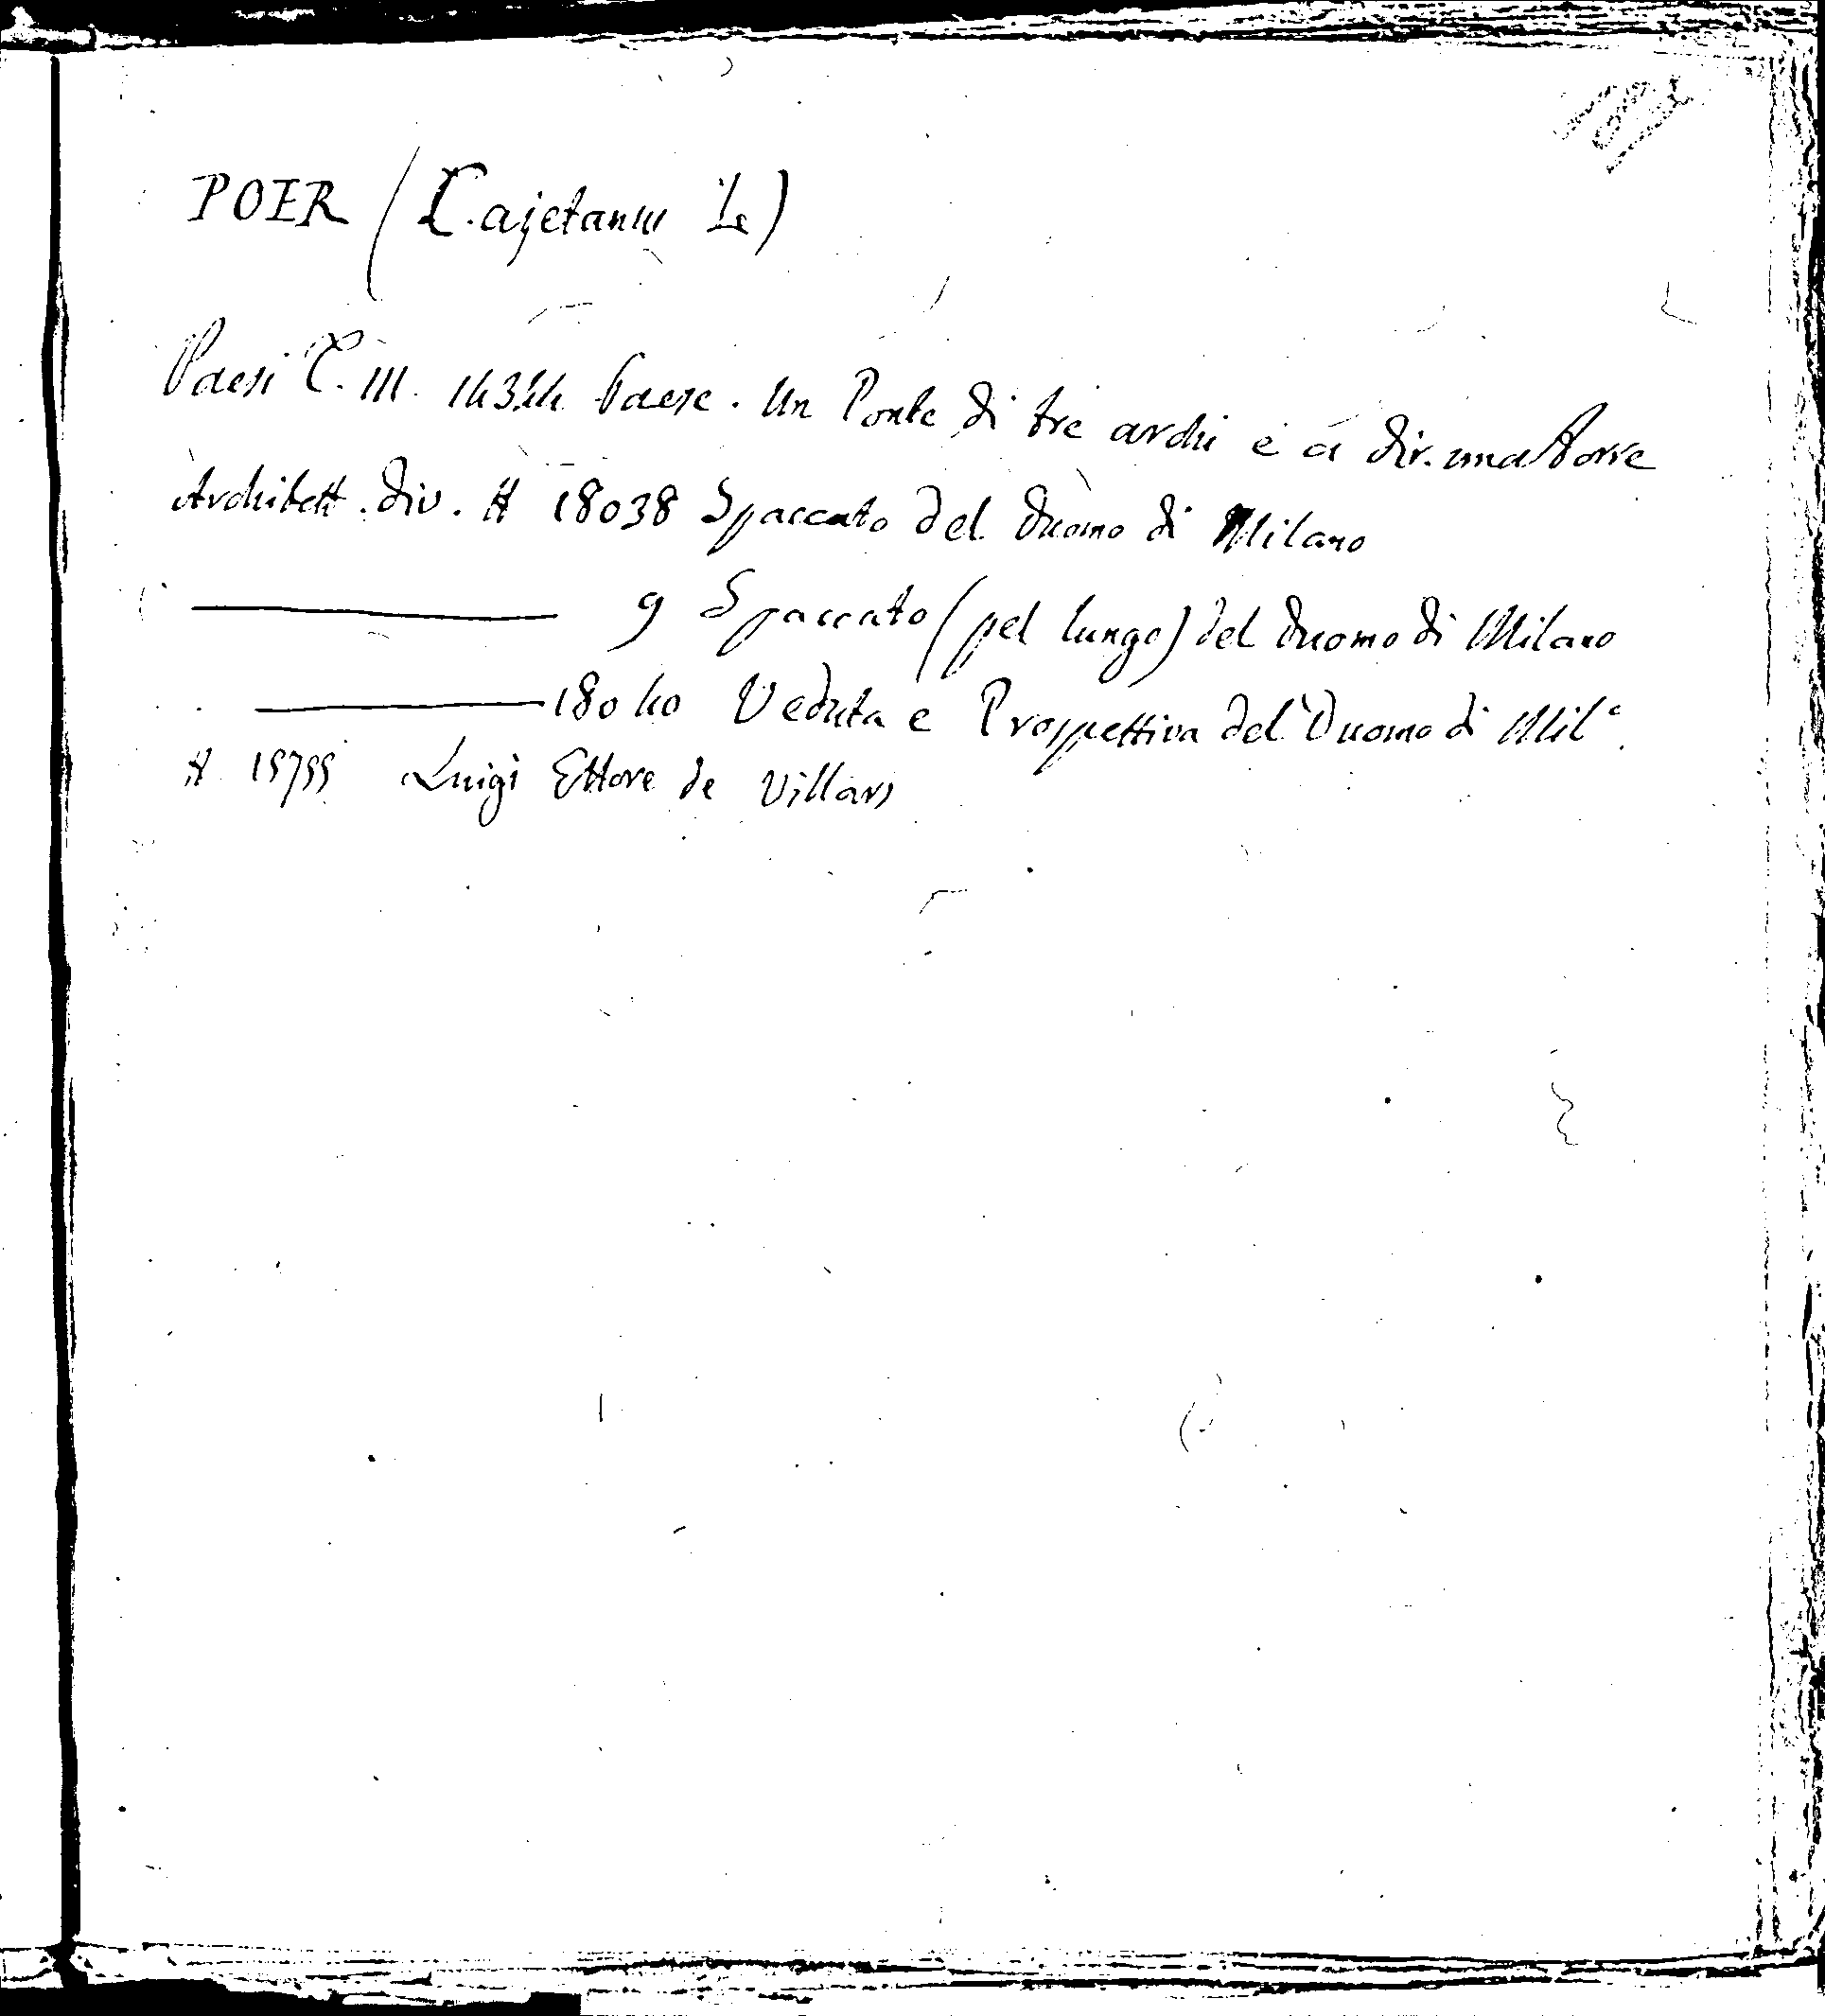 POER (Cajetanus Le)
Paesi T. III. 14344 Paese. Un Ponte di tre archi e a dir. una torre
Architett. div. # 18038 Spaccato del Duomo di Milano
9 Spaccato (pel lungo) del Duomo di Milano
18040 Veduta e Prospettiva del Duomo di Mil°.
# 15799 Luigi Ettore de Villars